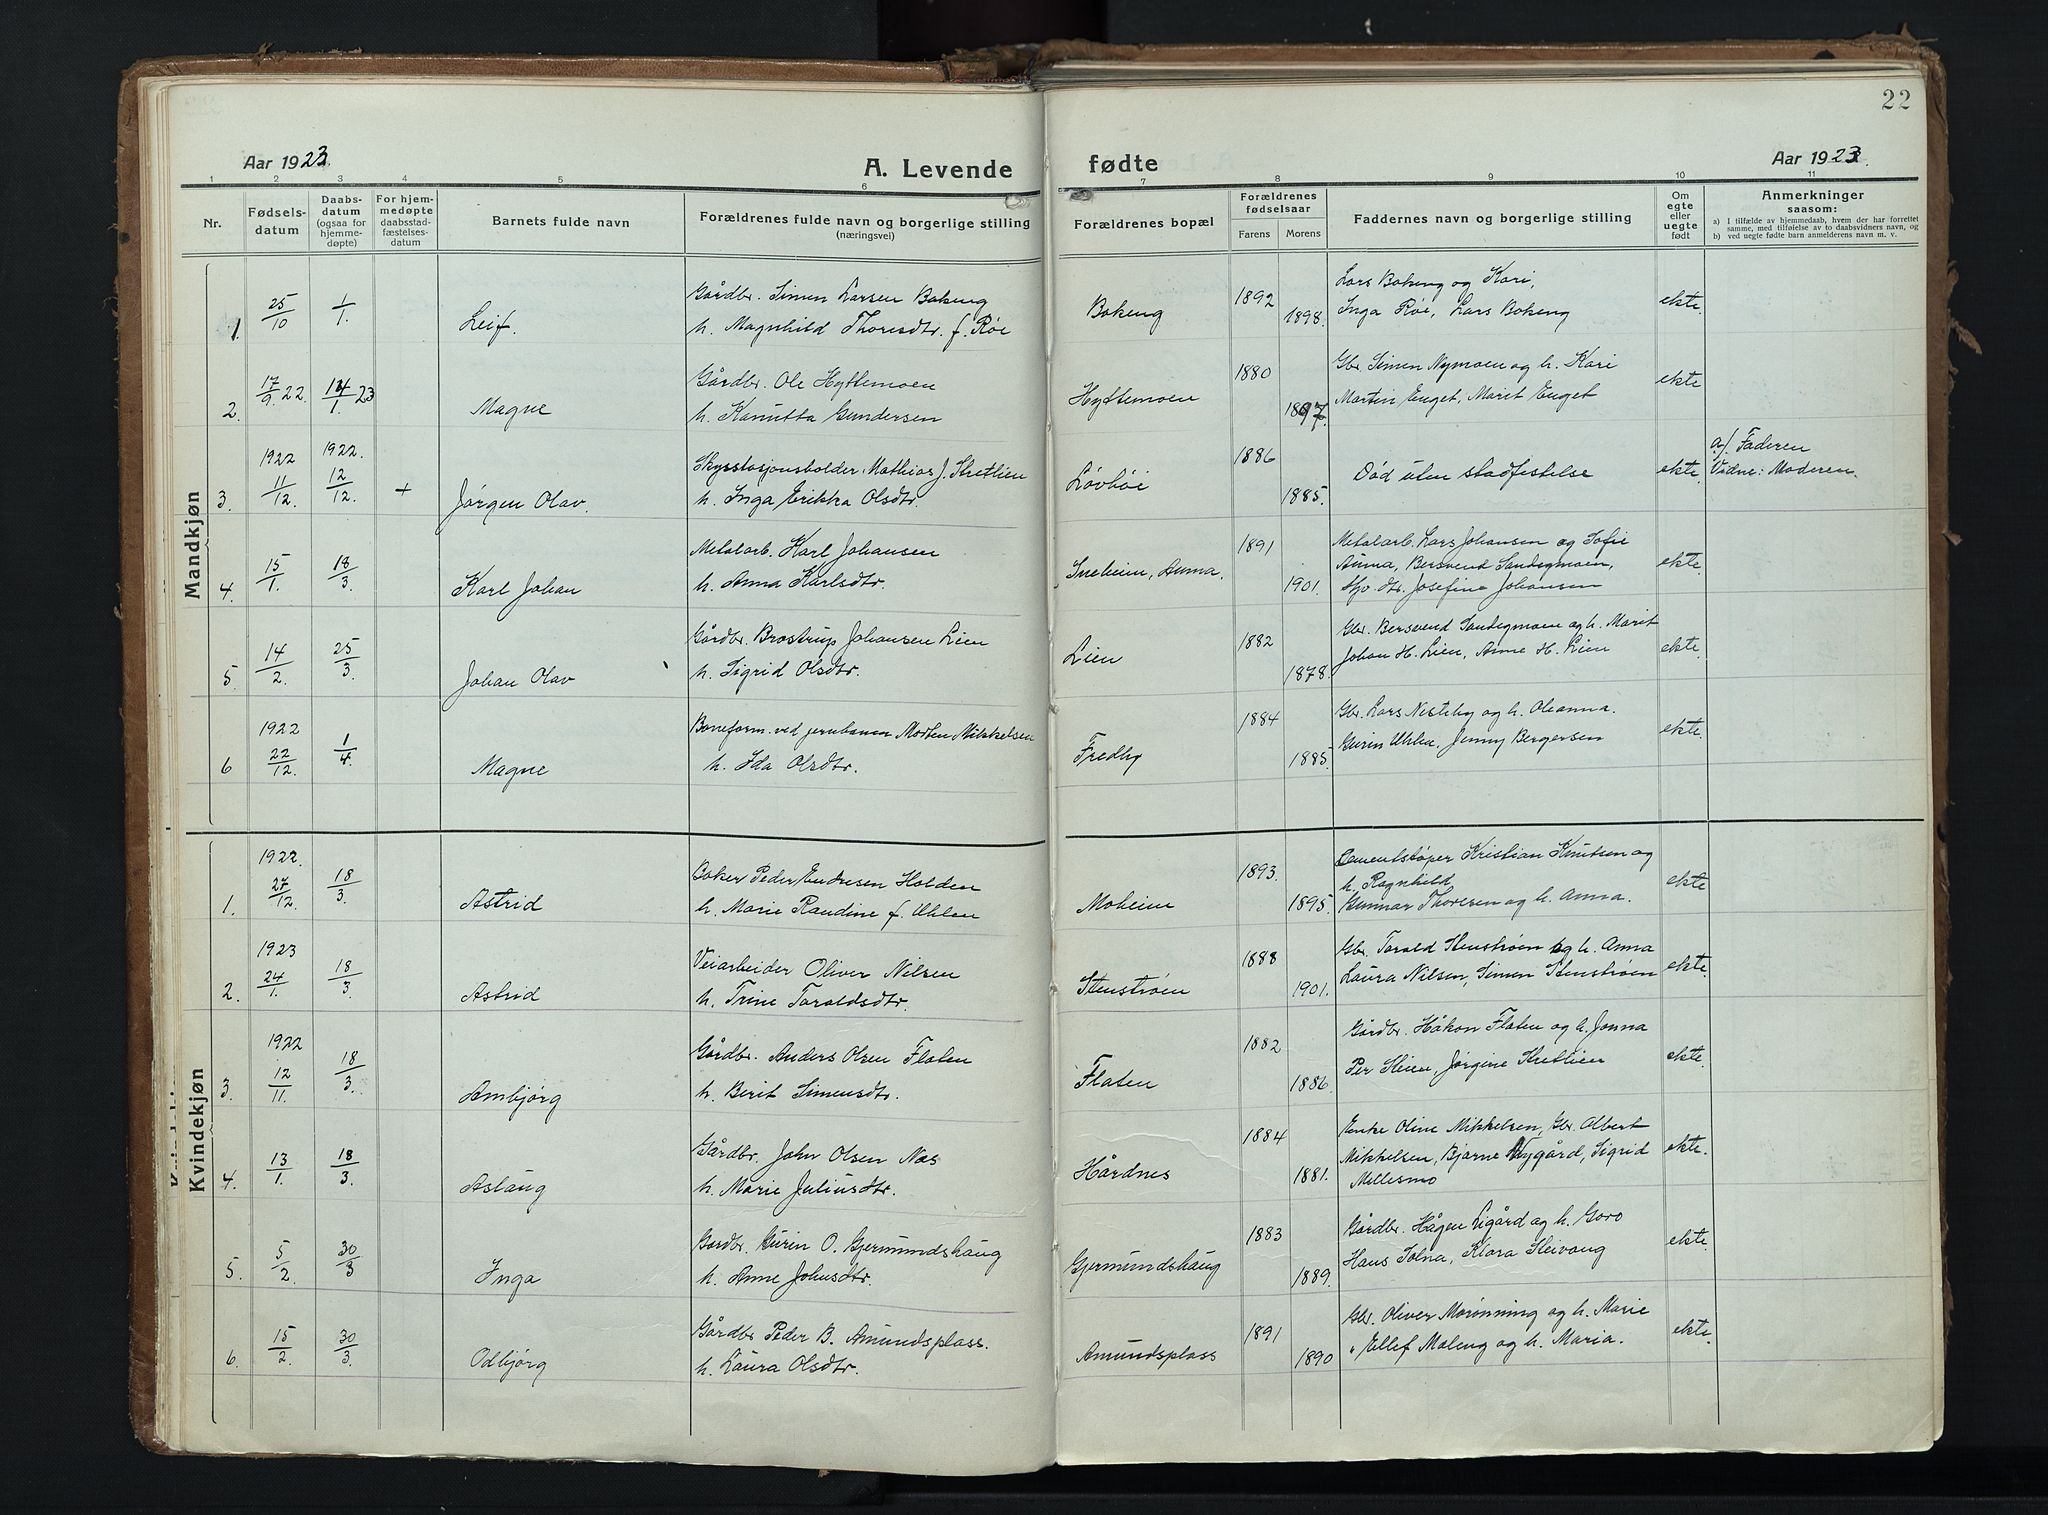 22
Aar 1923. A. Levende fødte Aar 1923.
1 2 3 4 5 6 7 8 9 10 11
Nr. Fødselsdatum Daabsdatum (ogsaa for hjemmedøpte) For hjemmedøpte daabsstadfæstelsesdatum Barnets fulde navn Forældrenes fulde navn og borgerlige stilling (næringsvei) Forældrenes bopæl Forældrenes fødselsaar Farens Morens Faddernes navn og borgerlige stilling Om egte eller uegte født Anmerkninger saasom:
a) I tilfælde av hjemmedaab, hvem der har forrettet samme, med tilføielse av to daabsvidners navn, og
b) ved uegte fødte barn anmelderens navn m. v.
Mandkjøn
1. 25/10 1/1. Leif. Gårdbr. Simen Larsen Bakeng Bakeng 1892 Lars Bakeng og Kari, ekte.
h. Magnhild Thoresdtr. f. Røe 1898. Inga Røe, Lars Bakeng
2. 17/9. 22. 14/1. 23 Magne Gårdbr. Ole Hyttemoen Hyttemoen 1880 Gbr. Simen Nymoen og h. Kari ekte
h. Kanutta Gundersen 1897. Martin Enget, Marit Enget
3. 1922 11/12. 1922. 12/12. + Jørgen Olav. Skysstasjonsholder Mathias J. Stretlien Løvhøi 1886 Død uten stadfestelse ekte. a/. Faderen
h. Inga Erikka Olsdtr. 1885. Vidne: Moderen.
4. 15/1. 18/3. Karl Johan Metalarb. Karl Johansen Sneheim, Auma. 1891 Metalarb. Lars Johansen og Sofie
h. Anna Karlsdtr. 1901. Auma, Bersvend Sandegmoen, ekte.
Josefine Johansen
5. 14/2. 25/3. Johan Olav Gårdbr. Brostrup Johansen Lien Lien 1882 Gbr. Bersvend Sandegmoen og h. Marit
h. Sigrid Olsdtr. 1878. Johan H. Lien, Anne H. Lien ekte.
6 1922 22/12. 1/4. Magne Baneform. ved jernbanen Morten Mikkelsen Fredly 1884 Gbr. Lars Nesteby og h. Oleanna. ekte.
h. Ida Olsdtr. 1885. Gurin Uhlen, Jenny Bergersen
Kvindekjøn
1. 1922. 27/12. 18/3. Astrid Baker Peder Endresen Holden Moheim 1893. Cementstøper Kristian Knutsen og
h. Marie Randine f. Uhlen 1895. h. Ragnhild ekte.
Gunnar Thoresen og h. Anna.
2. 1923 24/1. 18/3. Astrid Veiarbeider Oliver Nilsen Stenstrøen 1888 Gbr. Torald Stenstrøen og h. Anna ekte.
h. Trine Toraldsdtr. 1901. Laura Nilsen, Simen Stenstrøen
3. 1922 12/11. 18/3. Ambjørg Gårdbr. Anders Olsen Flaten Flaten 1882 Gårdbr. Håkon Flaten og h. Jonna ekte.
h. Berit Simensdtr. 1886. Per Steien, Jørgine Stretlien
4. 13/1. 18/3. Aslaug Gårdbr. John Olsen Næs Hårdnes 1884 Enke Oline Mikkelsen, Gbr. Albert
h. Marie Juliusdtr. 1881. Mikkelsen, Bjarne Nygård, Sigrid ekte.
Nellesmo
5. 5/2. 30/3 Inga Gårdbr. Gurin O. Gjermundshaug Gjermundshaug 1883 Gårdbr. Hågen Ligård og h. Goro ekte.
h. Anne Johnsdtr. 1889. Hans Tolna, Klara Steivang
6. 15/2. 30/3. Odbjørg Gårdbr. Peder B. Amundsplass. Amundsplass 1891 Gbr. Oliver Morønning og h. Marie ekte.
h. Laura Olsdtr. 1890 " Ellef Moleng og h. Maria.